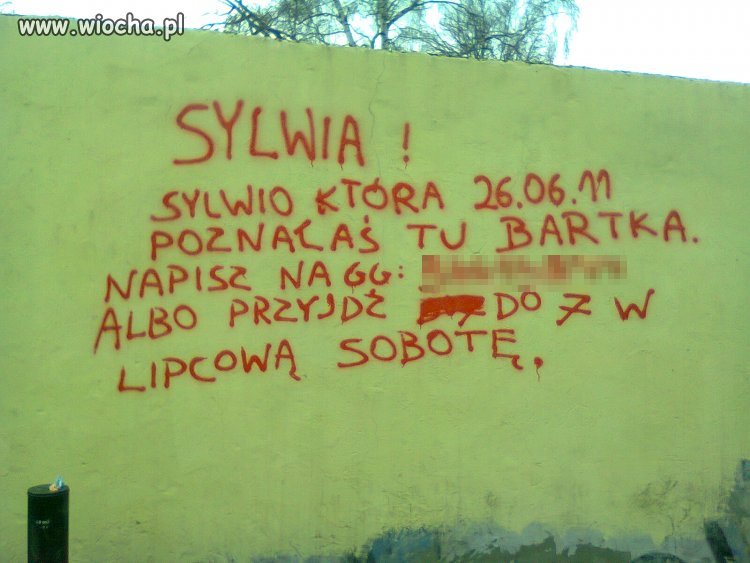 www.wiocha.pl
SYLWIA !
SYLWIO KTÓRA 26.06.11
POZNAŁAŚ TU BARTKA.
NAPISZ NA GG:
ALBO PRZYJDŹ DO 7 W
LIPCOWĄ SOBOTĘ.